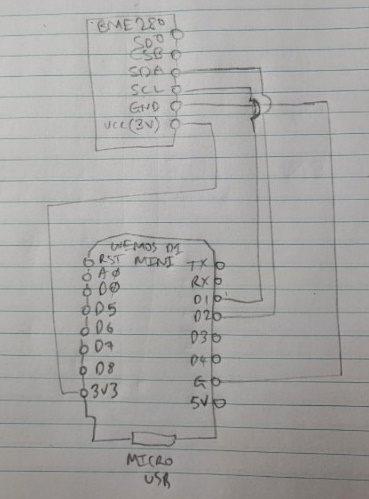 BME280
SDO
CSB
SDA
SCL
GND
VCC(3V)
WEMOS D1
MINI
RST
A0
D0
D5
D6
D7
D8
3V3
TX
RX
D1
D2
D3
D4
G
5V
MICRO
USB